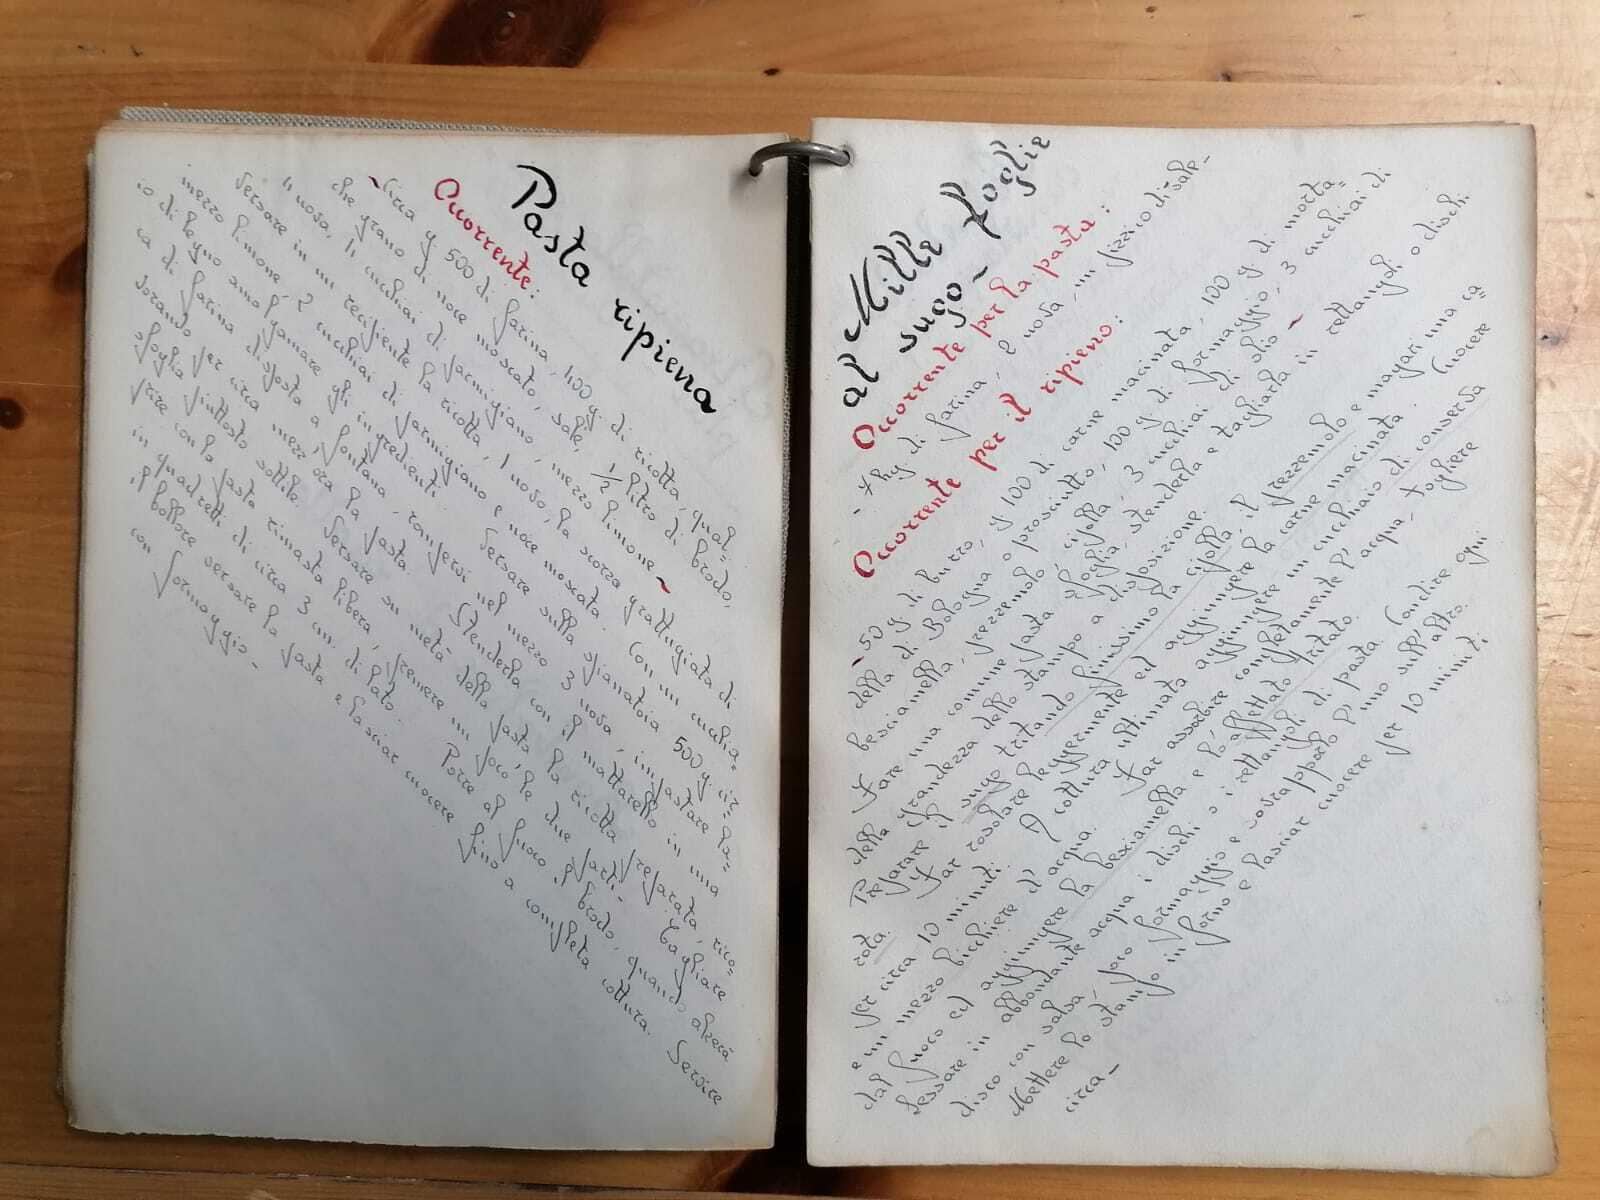 Pasta ripiena
Occorrente:
- Circa g. 500 di farina, 400 g. di ricotta, qual=
che grano di noce moscato, sale, 1/2 litro di brodo,
4 uova, 4 cucchiai di parmigiano, mezzo limone -
Versare in un recipiente la ricotta, 1 uovo, la scorza grattugiata di
mezzo limone, 2 cucchiai di parmigiano e noce moscata. Con un cucchia=
io di legno amalgamare gli ingredienti. Versare sulla spianatoia 500 g. cir=
ca di farina disposta a fontana, rompervi nel mezzo 3 uova, impastare la=
vorando per circa mezz'ora la pasta. Stenderla con il mattarello in una
sfoglia piuttosto sottile. Versare su metà della pasta la ricotta preparata, rico=
prire con la pasta rimasta libera, premere un poco le due parti. Tagliare
in quadretti di circa 3 cm. di lato. Porre al fuoco il brodo, quando alzerà
il bollore versare la pasta e lasciar cuocere fino a completa cottura. Servire
con formaggio -
Mille foglie
al sugo -
Occorrente per la pasta:
- 1 kg di farina, 2 uova, un pizzico di sale -
Occorrente per il ripieno:
- 50 g. di burro, g. 100 di carne macinata, 100 g. di morta=
della di Bologna o prosciutto, 100 g. di formaggio, 3 cucchiai di
besciamella, prezzemolo, cipolla, 3 cucchiai di olio -
Fare una comune pasta sfoglia, stenderla e tagliarla in rettangoli o dischi
della grandezza dello stampo a disposizione.
Preparare il sugo tritando finissimo la cipolla, il prezzemolo e magari una ca=
rota. Far rosolare leggermente ed aggiungere la carne macinata. Cuocere
per circa 10 minuti. A cottura ultimata aggiungere un cucchiaio di conserva
e un mezzo bicchiere d'acqua. Far assorbire completamente l'acqua, togliere
dal fuoco ed aggiungere la besciamella e lo affettato tritato.
Lessare in abbondante acqua i dischi o i rettangoli di pasta. Condire ogni
disco con salsa, poco formaggio e sovrapporlo l'uno sull'altro.
Mettere lo stampo in forno e lasciar cuocere per 10 minuti
circa -